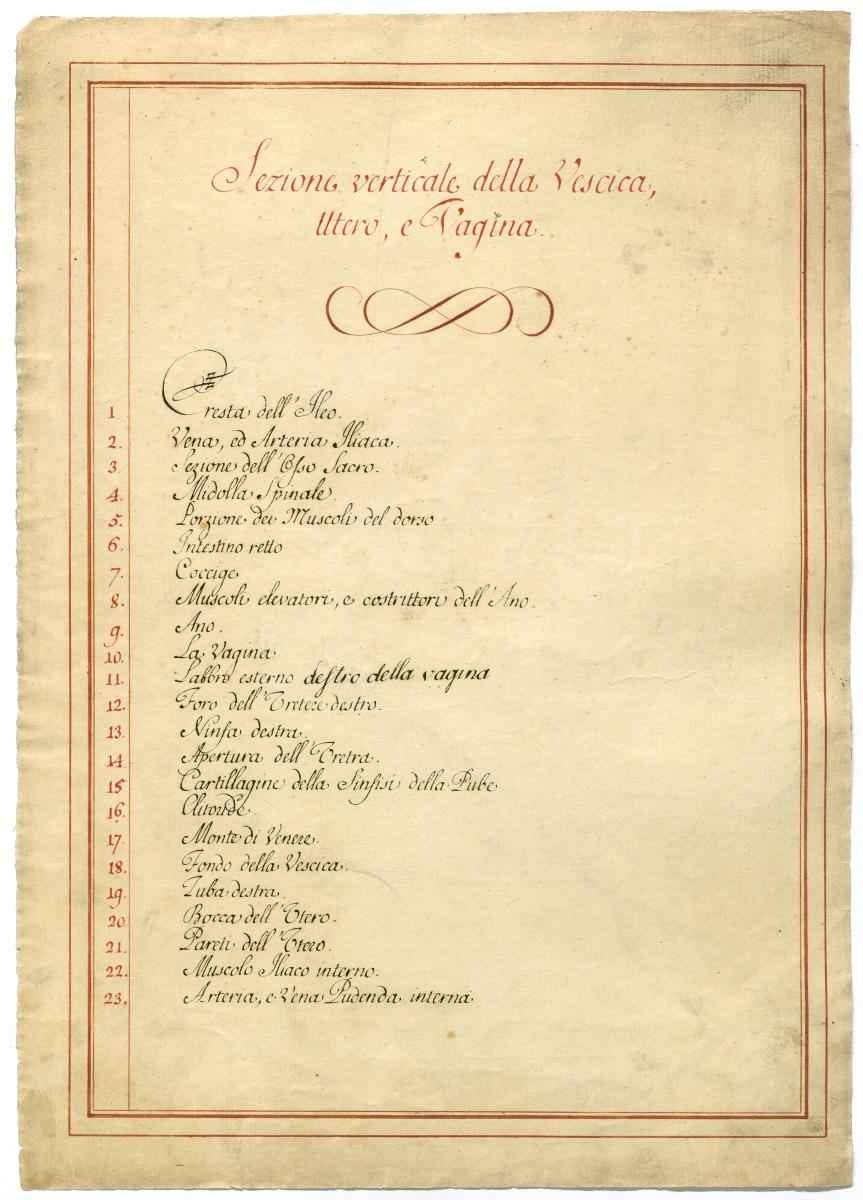 Sezione verticale della Vescica,
Utero, e Vagina.
1 Cresta dell' Ileo.
2. Vena, ed Arteria Iliaca.
3. Sezione dell' Osso Sacro.
4. Midolla Spinale.
5. Porzione dei Muscoli del dorso
6. Intestino retto
7. Coccige
8. Muscoli elevatori, e costrittori dell' Ano.
9. Ano.
10. La Vagina
11. Labbro esterno destro della vagina
12. Foro dell' Uretere destro.
13. Ninfa destra.
14 Apertura dell' Uretra.
15 Cartillagine della Sinfisi della Pube
16. Clitoride.
17. Monte di Venere.
18. Fondo della Vescica.
19. Tuba destra.
20 Bocca dell' Utero.
21. Pareti dell' Utero.
22. Muscolo Iliaco interno.
23. Arteria, e Vena Pudenda interna